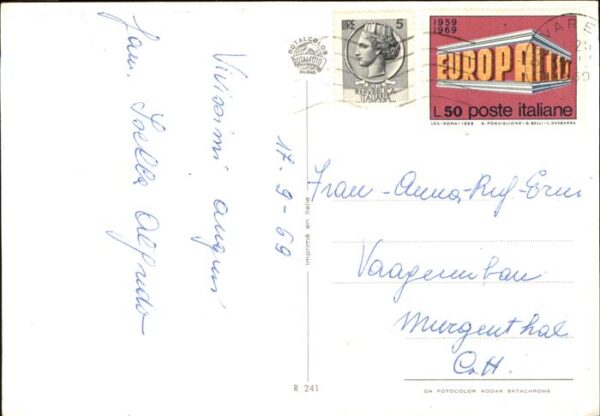 Vivissimi auguri
Fam. Scella Alfredo
17-9-69
ROTALCOLOR
ROTALFOTO
MILANO
LIRE 5
POSTE
REPUBBLICA
ITALIANA
1959
1969
EUROPA CEPT
L.50 poste italiane
I.P.S.-ROMA-1969
Frau-Anna-Ruf-Erni
Waagenunbau
Murgenthal
C.H.
Imprimé en Italie
R 241
DA FOTOCOLOR KODAK EKTACHROME